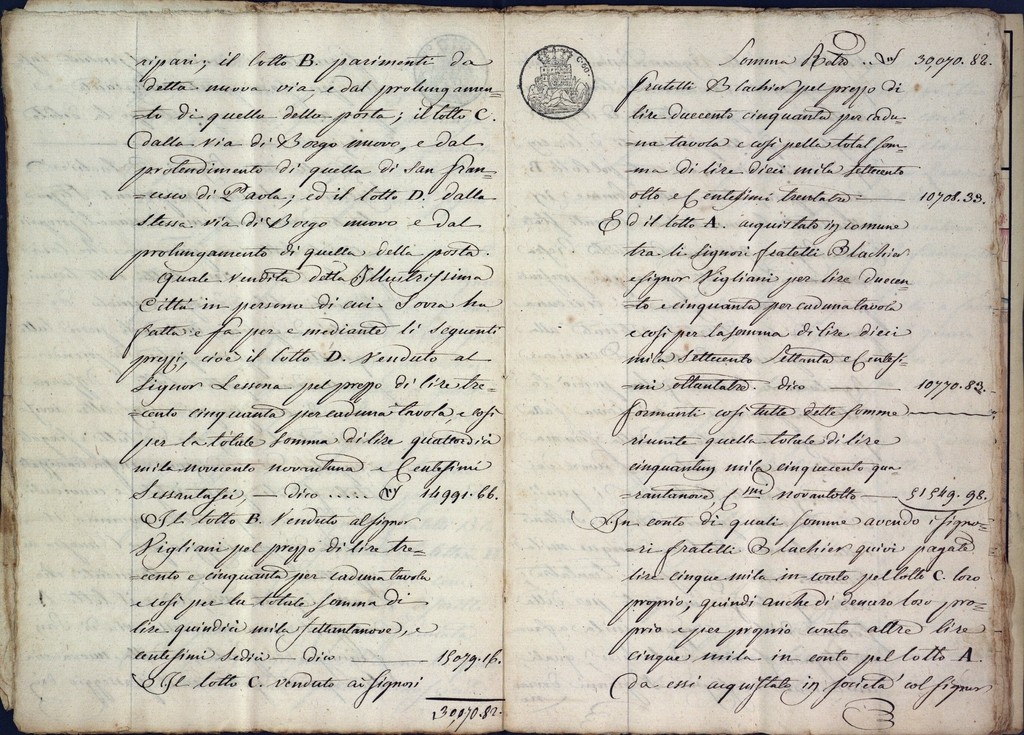 ripari; il lotto B. parimenti da
detta nuova via, e dal prolungamen=
=to di quella della posta; il lotto C.
dalla via di Borgo nuovo, e dal
protendimento di quella di San fran=
=cesco di Paola; ed il lotto D. dalla
stessa via di Borgo nuovo e dal
prolungamento di quella della posta.
Quale vendita detta Illustrissima
Città in persona di cui Sovra ha
fatta e fa per e mediante li Seguenti
prezzi, cioè il lotto D. venduto al
Signor Lessona pel prezzo di lire tre=
=cento cinquanta per caduna tavola, e così
per la totale Somma di lire quattordici
mila novecento novantuna e Centesimi
Sessantasei, — dico ..... 14991.66.
Il lotto B. venduto al Signor
Vigliani pel prezzo di lire tre=
=cento e cinquanta per caduna tavola
e così per la totale Somma di
lire quindici mila Settantanove, e
centesimi Sedici — dico — 15079.16.
Il lotto C. venduto ai Signori
30,070.82.
C.60.
Somma Retro .. 30,070.82.
fratelli Blachier pel prezzo di
lire duecento cinquanta per cadu=
=na tavola e così pella total Som=
=ma di lire dieci mila Settecento
otto e Centesimi trentatre — 10708.33.
Ed il lotto A. acquistato in comune
tra li Signori fratelli Blachier
e Signor Vigliani per lire duecen=
=to e cinquanta per caduna tavola
e così per la Somma di lire dieci
mila Settecento Settanta e Centesi=
=mi ottantatre. dico — 10770.83.
formanti così tutte dette Somme —
riunite quella totale di lire
cinquantun mila cinquecento qua=
=rantanove C.mi novantotto — 51549.98.
In conto di quali Somme avendo i Signo=
=ri fratelli Blachier quivi pagate
lire cinque mila in conto pel lotto C. loro
proprio; quindi anche di denaro loro pro=
prio e per proprio conto altre lire
cinque mila in conto pel lotto A.
da essi acquistato in società col Signor